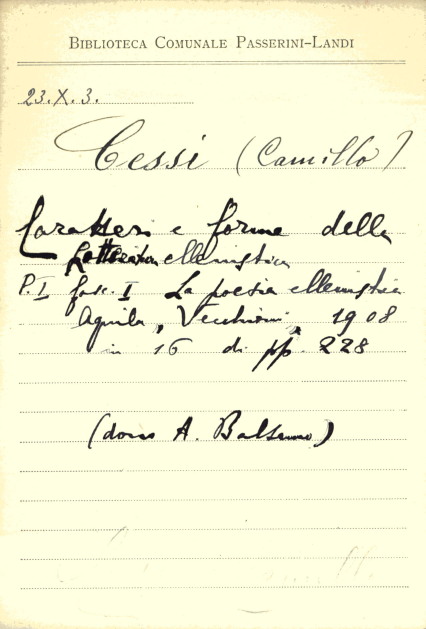 BIBLIOTECA COMUNALE PASSERINI-LANDI
23.X.3.
Cessi (Camillo)
Caratteri e forme della
Letteratura ellenistica
P. I fasc. I La poesia ellenistica
Aquila, Vecchioni, 1908
in 16 di pp. 228
(dono A. Balsamo)